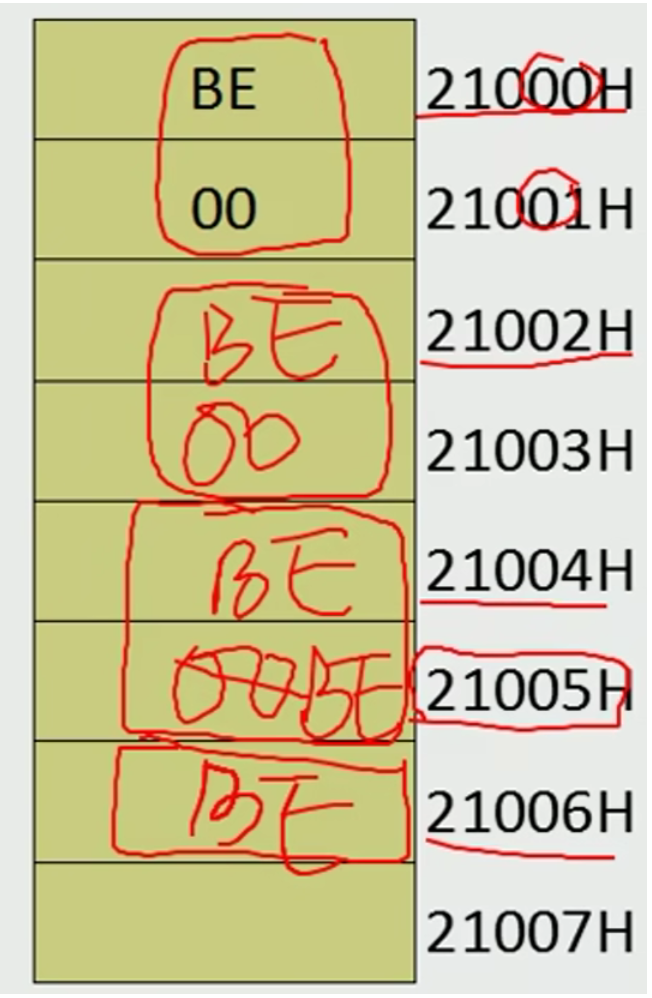 BE 21000H
00 21001H
BE 21002H
00 21003H
BE 21004H
00 BE 21005H
BE 21006H
21007H